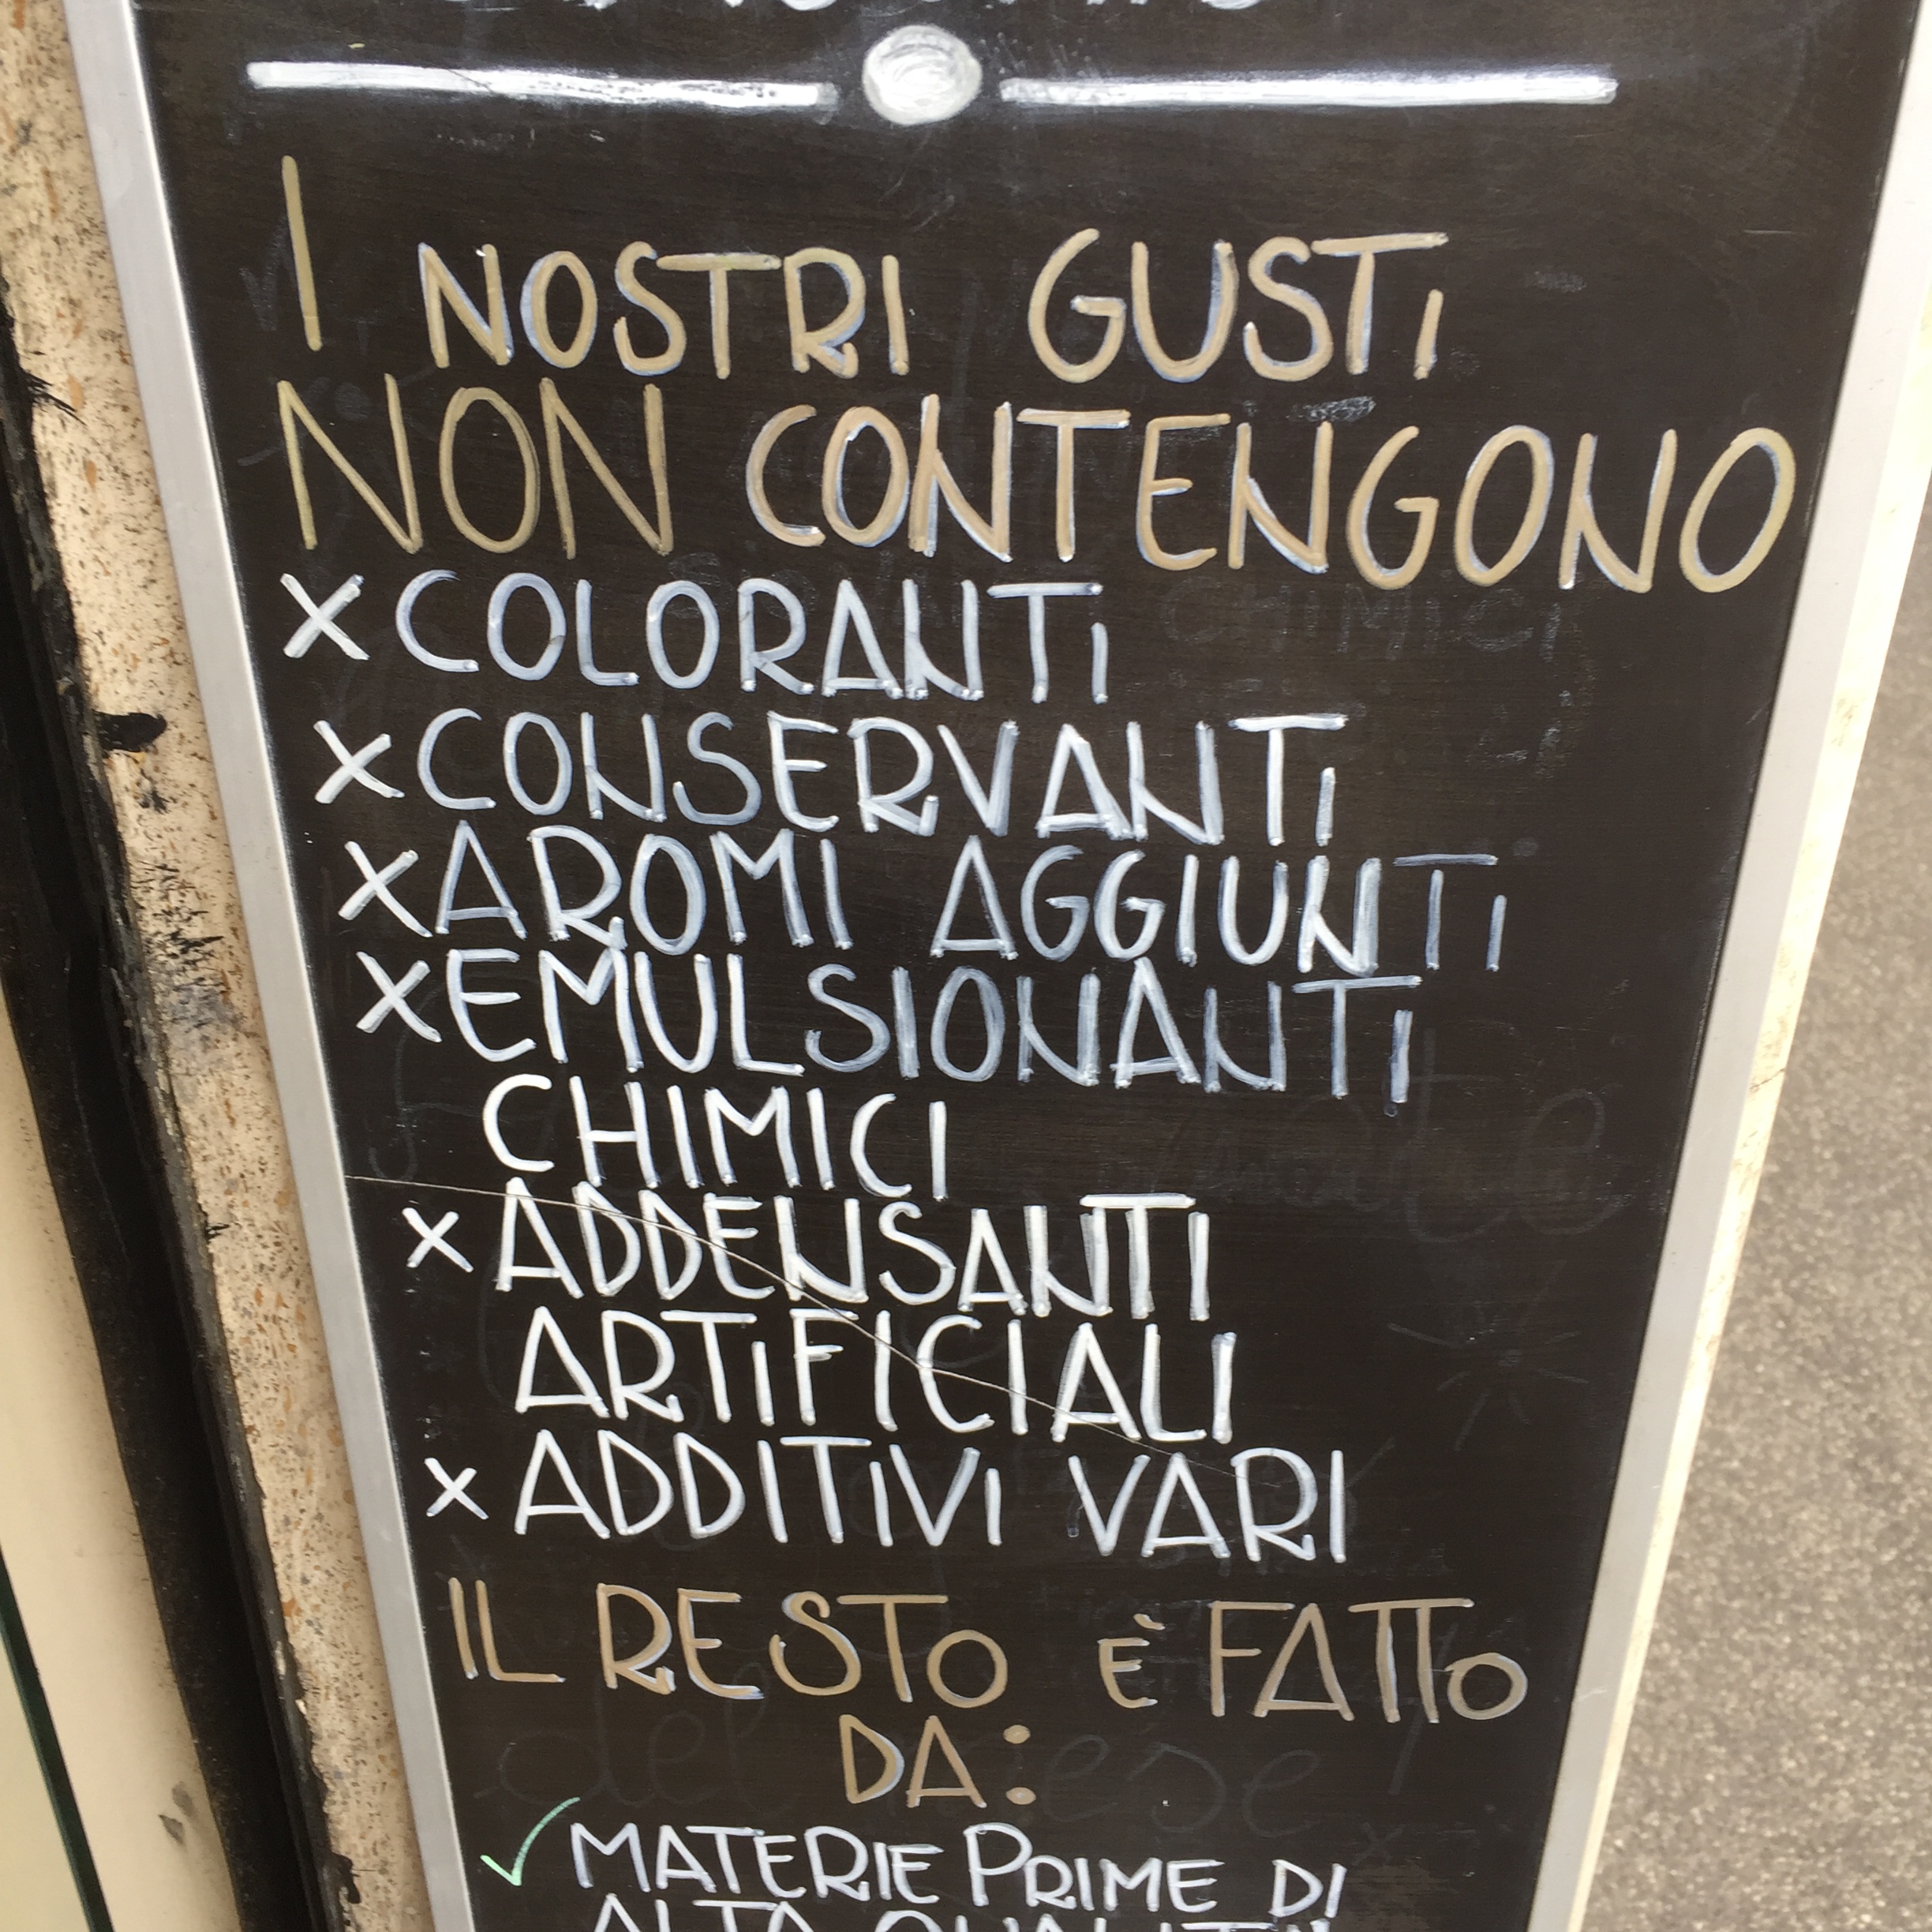 I NOSTRI GUSTI
NON CONTENGONO
X COLORANTI
X CONSERVANTI
X AROMI AGGIUNTI
X EMULSIONANTI
CHIMICI
X ADDENSANTI
ARTIFICIALI
X ADDITIVI VARI
IL RESTO È FATTO
DA:
✓ MATERIE PRIME DI
ALTA QUALITÀ